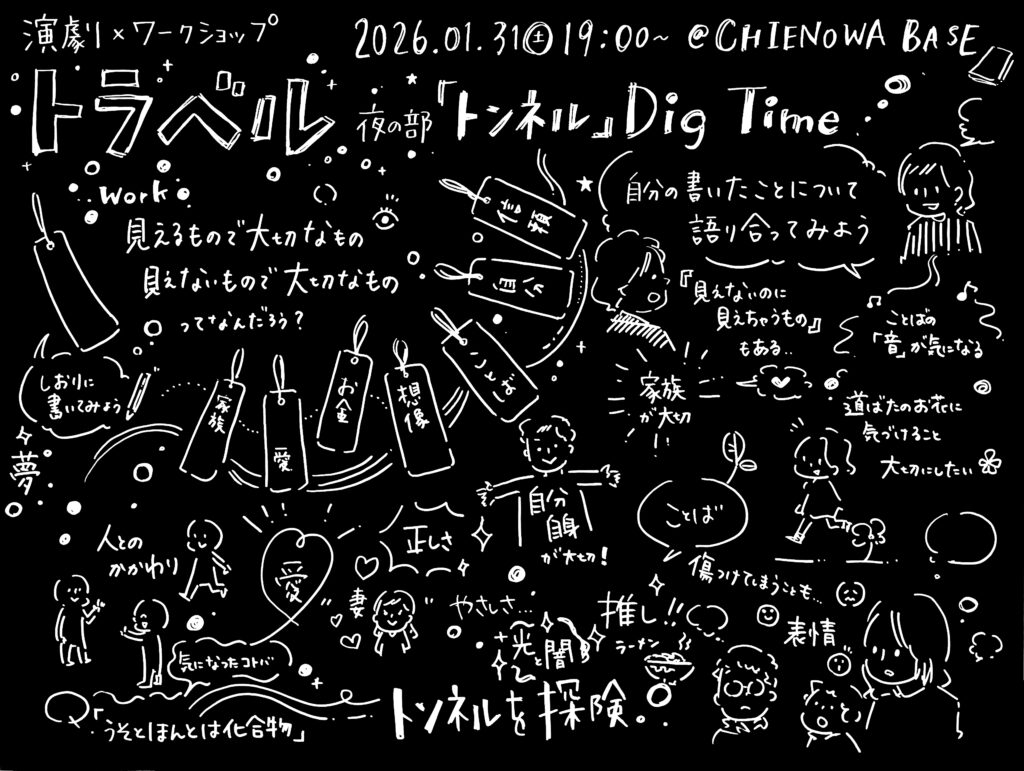 演劇×ワークショップ
2026.01.31㊏19:00~ @CHIENOWA BASE
トラベル 夜の部「トンネル」Dig Time
work
見えるもので大切なもの
見えないもので大切なもの
ってなんだろう?
しおりに
書いてみよう
夢
家族
愛
お金
想像
ことば
自分
信頼
自分の書いたことについて
語り合ってみよう
『見えないのに
見えちゃうもの』
もある..
ことばの
「音」が気になる
家族
が大切
道ばたのお花に
気づけること
大切にしたい
自分
自身
が大切!
ことば
傷つけてしまうことも...
人との
かかわり
愛
正しさ
"妻"
やさしさ...
光と闇
推し!!
ラーメン
表情
気になったコトバ
「うそとほんとは化合物」
トンネルを探険。